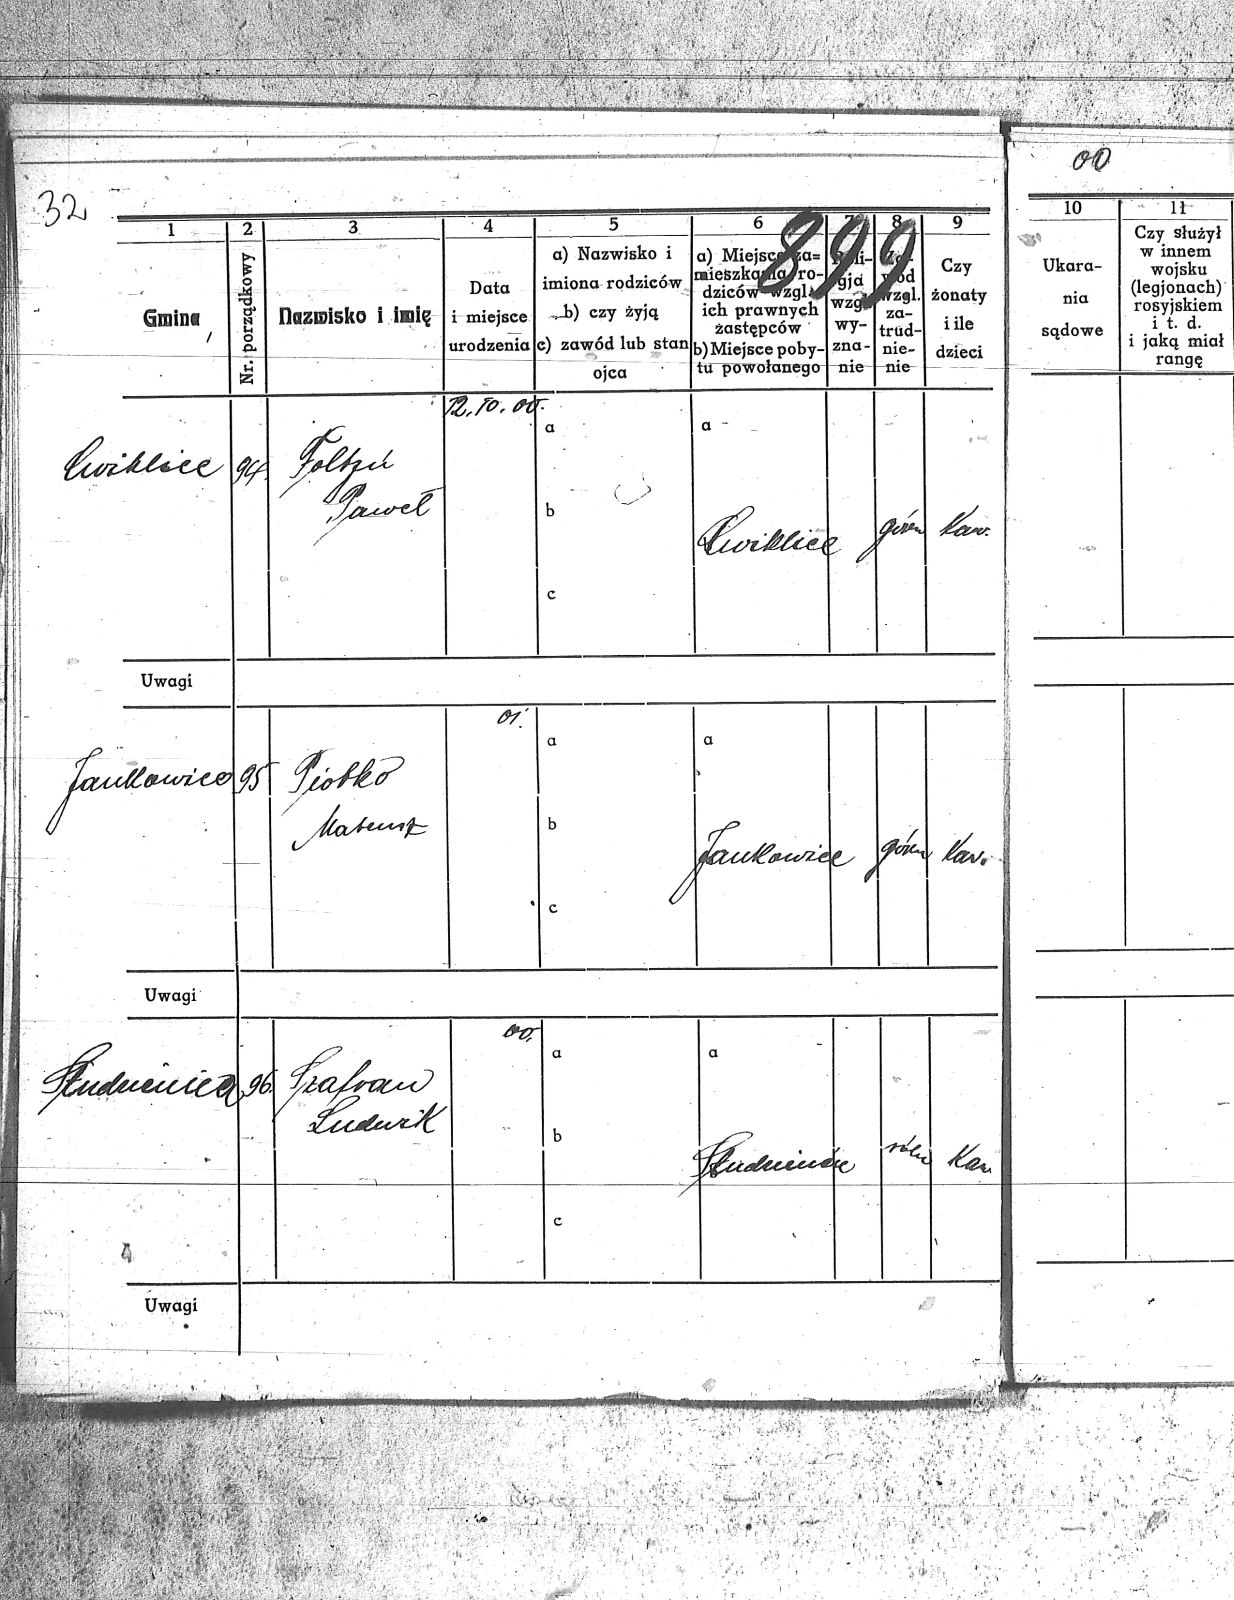 32
00
899
1
2
3
4
5
6
7
8
9
10
11
Gmina
Nr. porządkowy
Nazwisko i imię
Data
i miejsce
urodzenia
a) Nazwisko i
imiona rodziców
b) czy żyją
c) zawód lub stan
ojca
a) Miejsce za=
mieszkania ro-
dziców wzgl.
ich prawnych
zastępców
b) Miejsce poby-
tu powołanego
Reli-
gja
wzgl.
wy-
zna-
nie
Za-
wód
wzgl.
za-
trud-
nie-
nie
Czy
żonaty
i ile
dzieci
Ukara-
nia
sądowe
Czy służył
w innem
wojsku
(legjonach)
rosyjskiem
i t. d.
i jaką miał
rangę
12. 10. 00.
Cwiklice 94.
Paweł
a
b
c
a
Cwiklice górn Kaw.
Uwagi
01.
Jankowice 95 Piotko
Mateusz
a
b
c
a
Jankowice górn Kaw.
Uwagi
00.
Studzienice 96. Szafran
Ludwik
a
b
c
a
Studzienice róln Kaw
Uwagi